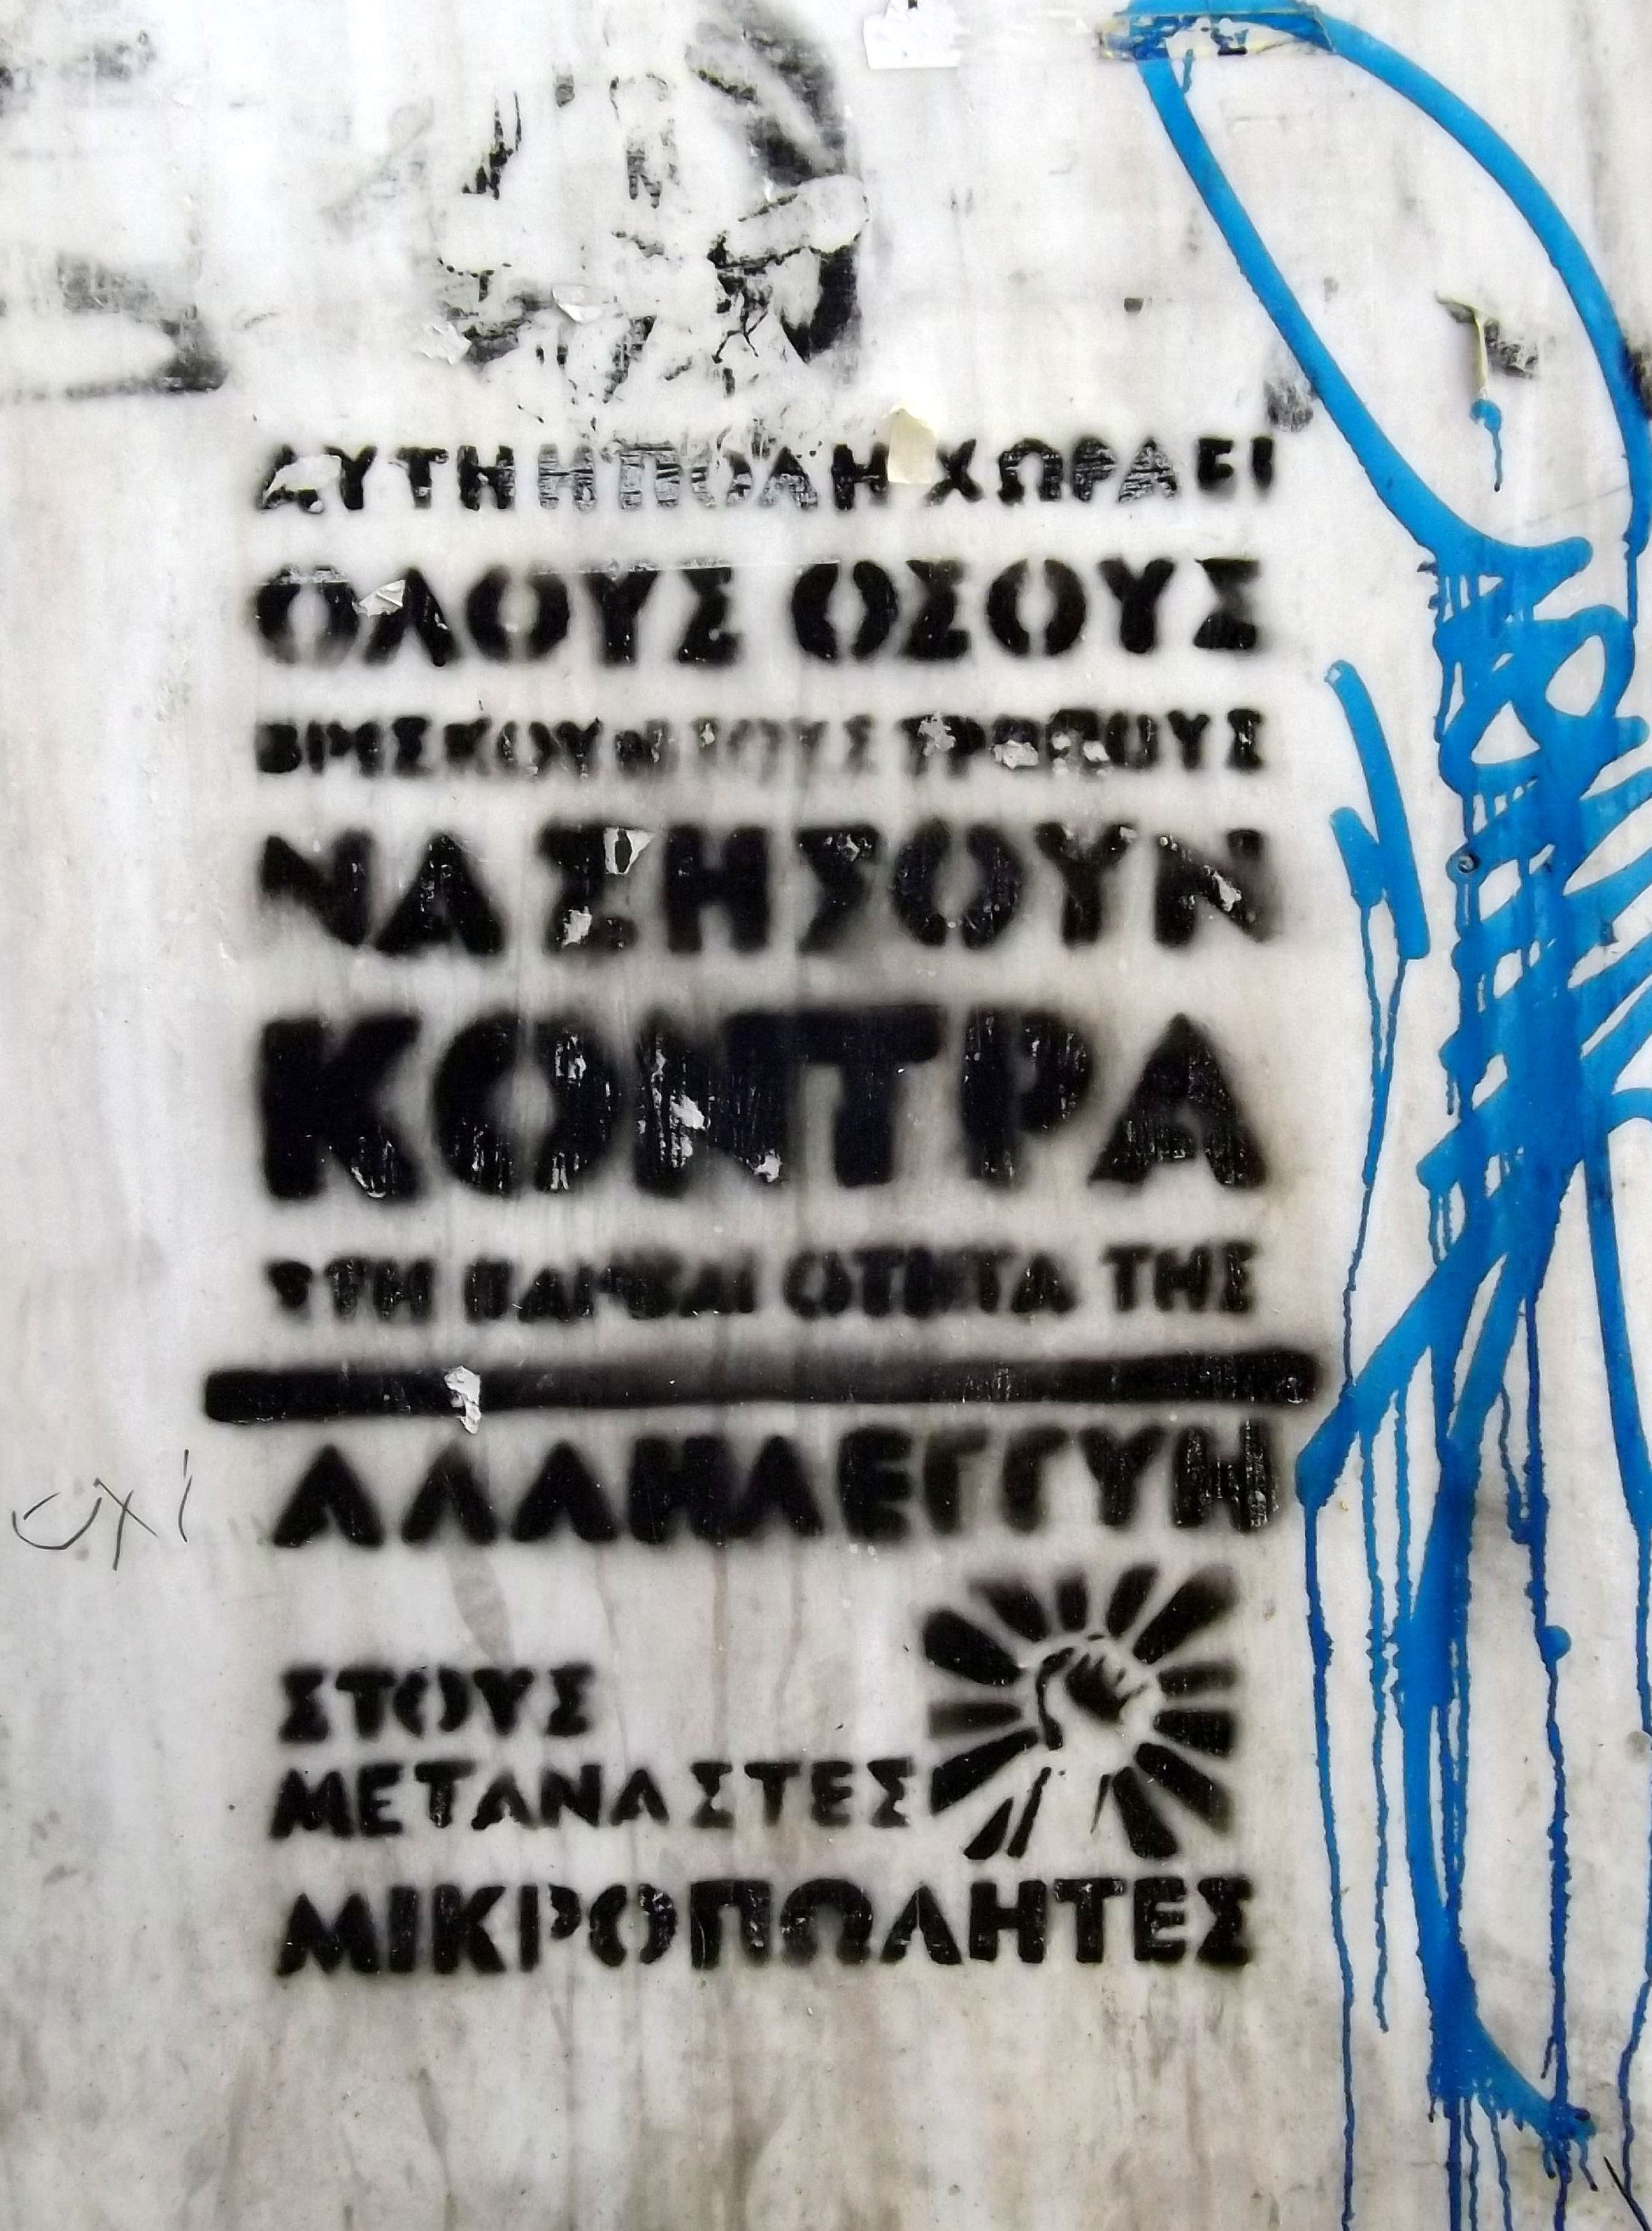 ΑΥΤΗ Η ΠΟΛΗ ΧΩΡΑΕΙ
ΟΛΟΥΣ ΟΣΟΥΣ
ΒΡΙΣΚΟΥΝ ΤΟΥΣ ΤΡΟΠΟΥΣ
ΝΑ ΖΗΣΟΥΝ
ΚΟΝΤΡΑ
ΣΤΗ ΠΑΡΑΝΟΜΟΤΗΤΑ ΤΗΣ
ΑΛΛΗΛΕΓΓΥΗ
οχι
ΣΤΟΥΣ
ΜΕΤΑΝΑΣΤΕΣ
ΜΙΚΡΟΠΩΛΗΤΕΣ